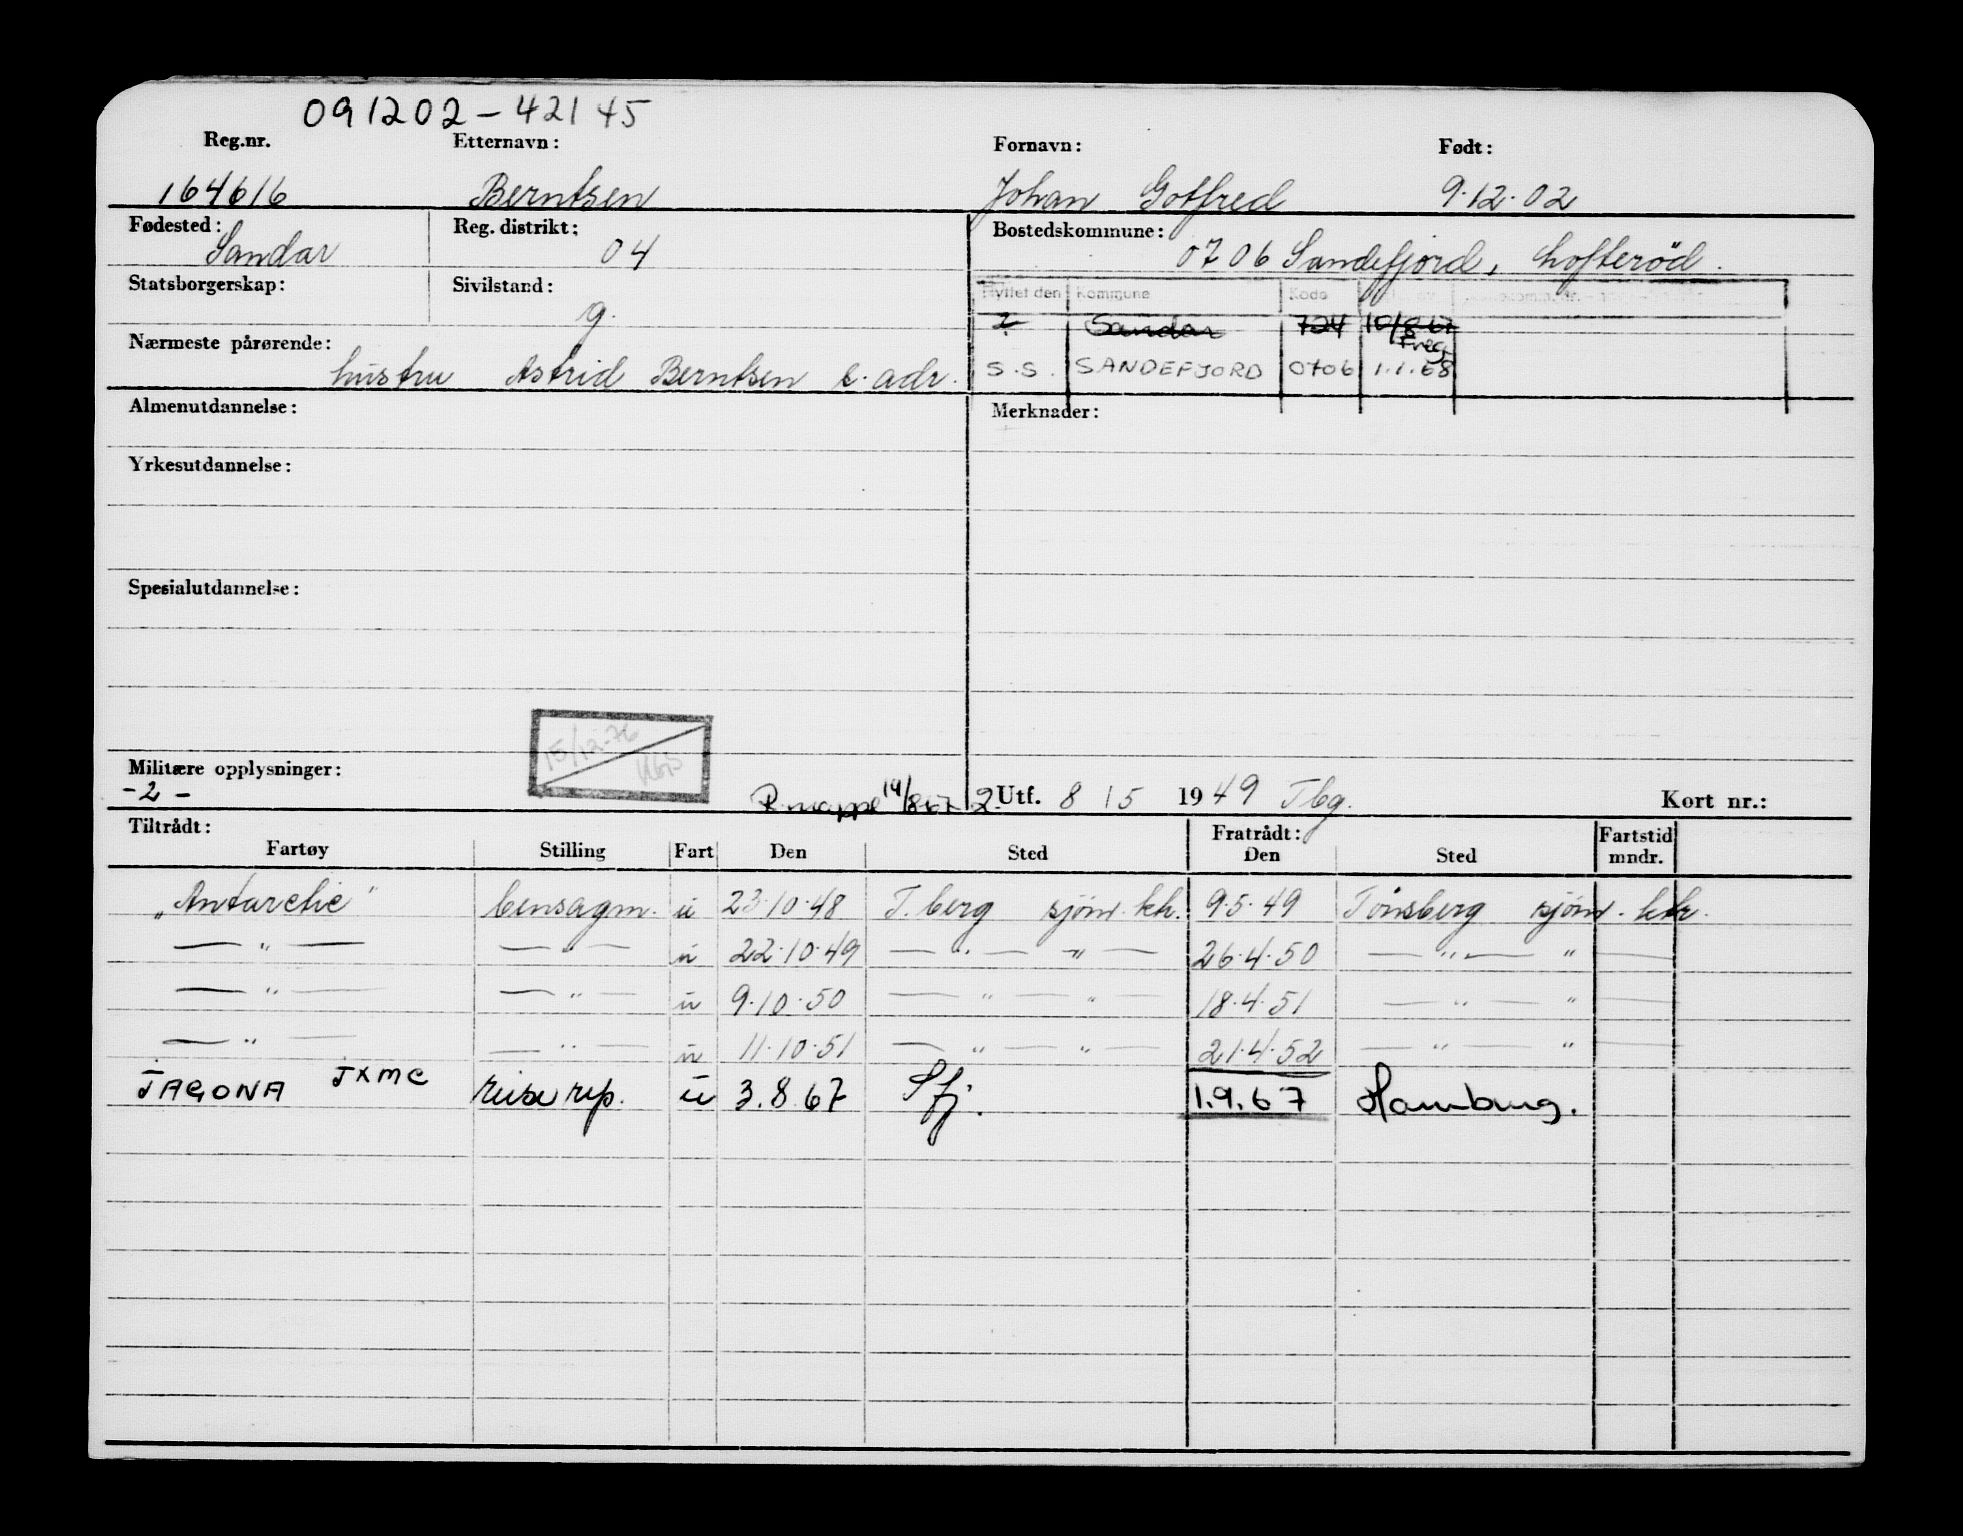 091202-42145
Reg.nr. Etternavn: Fornavn: Født:
164616 Berntsen Johan Gotfred 9.12.02
Fødested: Sandar Reg. distrikt: 04 Bostedskommune: 0706 Sandefjord, Lofterød.
Statsborgerskap: Sivilstand: g. Flyttet den Kommune Kode
? Sandar 724 10/8 67
Freg.
Nærmeste pårørende: hustru Astrid Berntsen s. adr. S.S. SANDEFJORD 0706 1.1.68
Almenutdannelse: Merknader:
Yrkesutdannelse:
Spesialutdannelse:
15/12-76
Militære opplysninger:
-2- P.mappe 14/8 67 2. Utf. 8/5 1949 Tbg. Kort nr.:
Tiltrådt: Fratrådt: Fartstid
Fartøy Stilling Fart Den Sted Den Sted mndr.
„Antarctic" u 23.10.48 T.berg sjøm.ktr. 9.5.49 Tønsberg sjøm.ktr.
— " — — " — u 22.10.49 — " — " — 26.4.50 — " — " —
— " — — " — u 9.10.50 — " — " — 18.4.51 — " — " —
— " — — " — u 11.10.51 — " — " — 21.4.52 — " — " —
JAGONA JXMC reise rep. u 3.8.67 Sfj. 1.9.67 Hamburg.